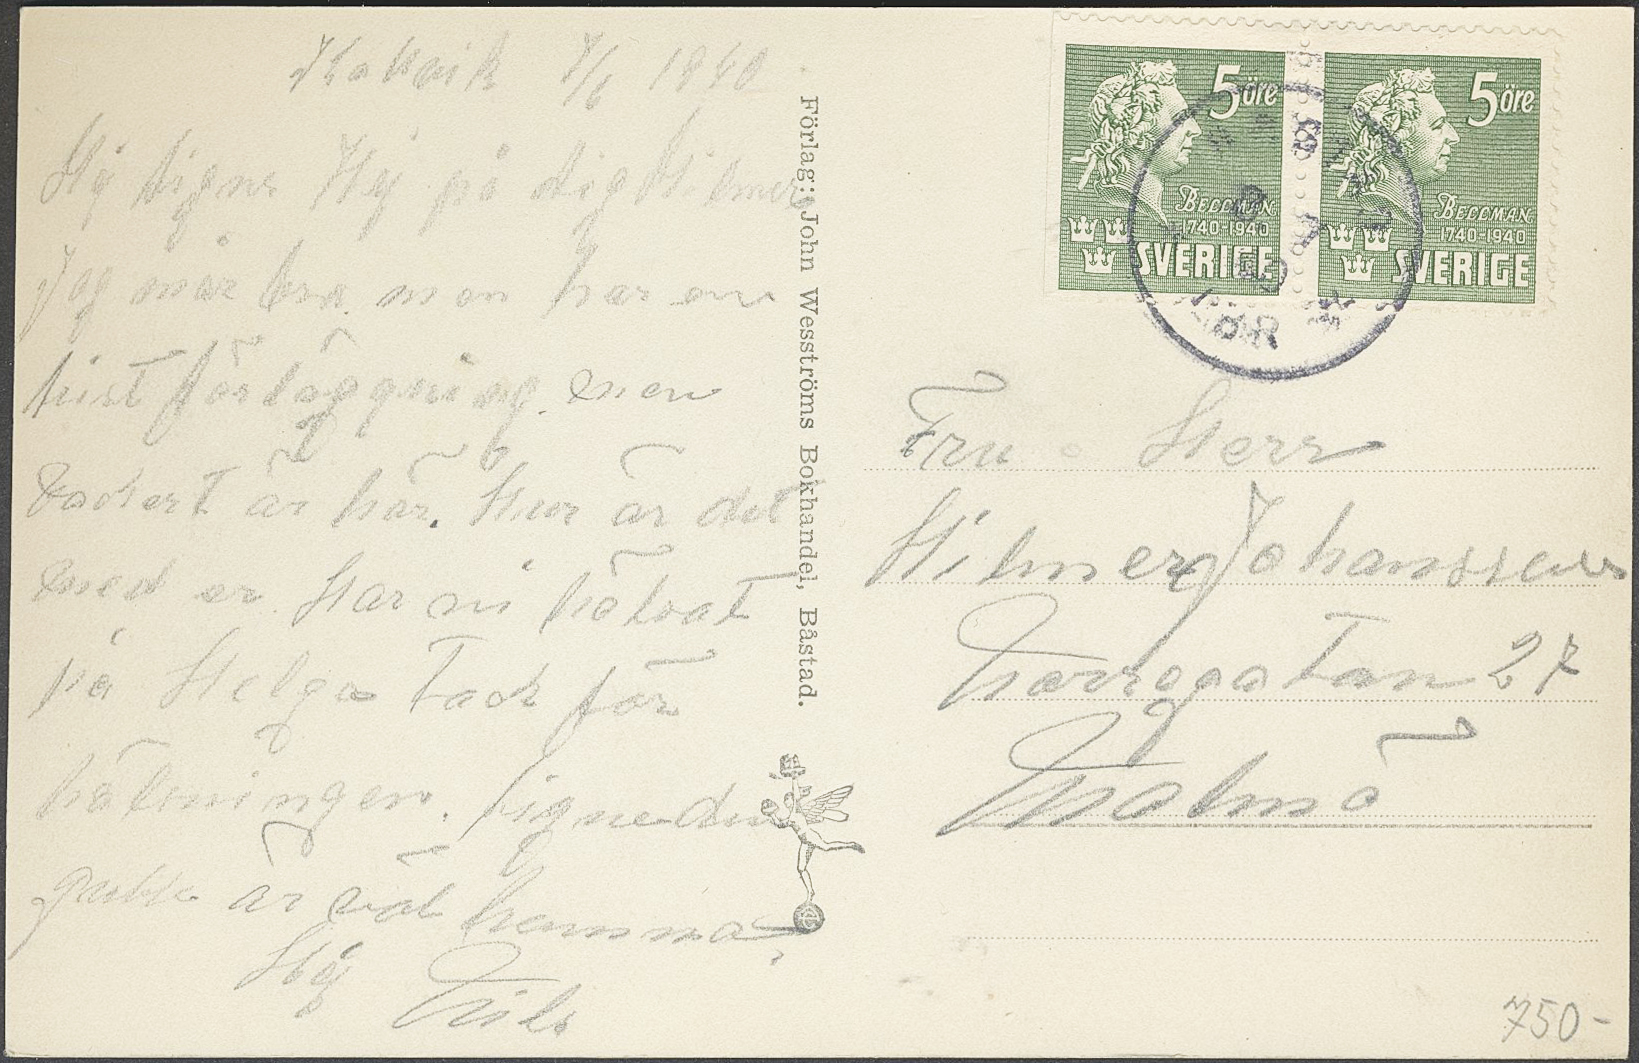 7/6 1940
Hej Signe Hej på dig Hilmer
Jag mår bra men har en
trist förläggning. men
vackert är här. Hur är det
med er. Har ni hälsat
på Helge Tack för
hälsningen. Signe din
gubbe är väl hemma,
Hej
Nils
Förlag: John Wesströms Bokhandel, Båstad.
5 öre
BELLMAN
1740-1940
SVERIGE
5 öre
BELLMAN
1740-1940
SVERIGE
Fru o Herr
Hilmer Johansson
27
Malmö
750-